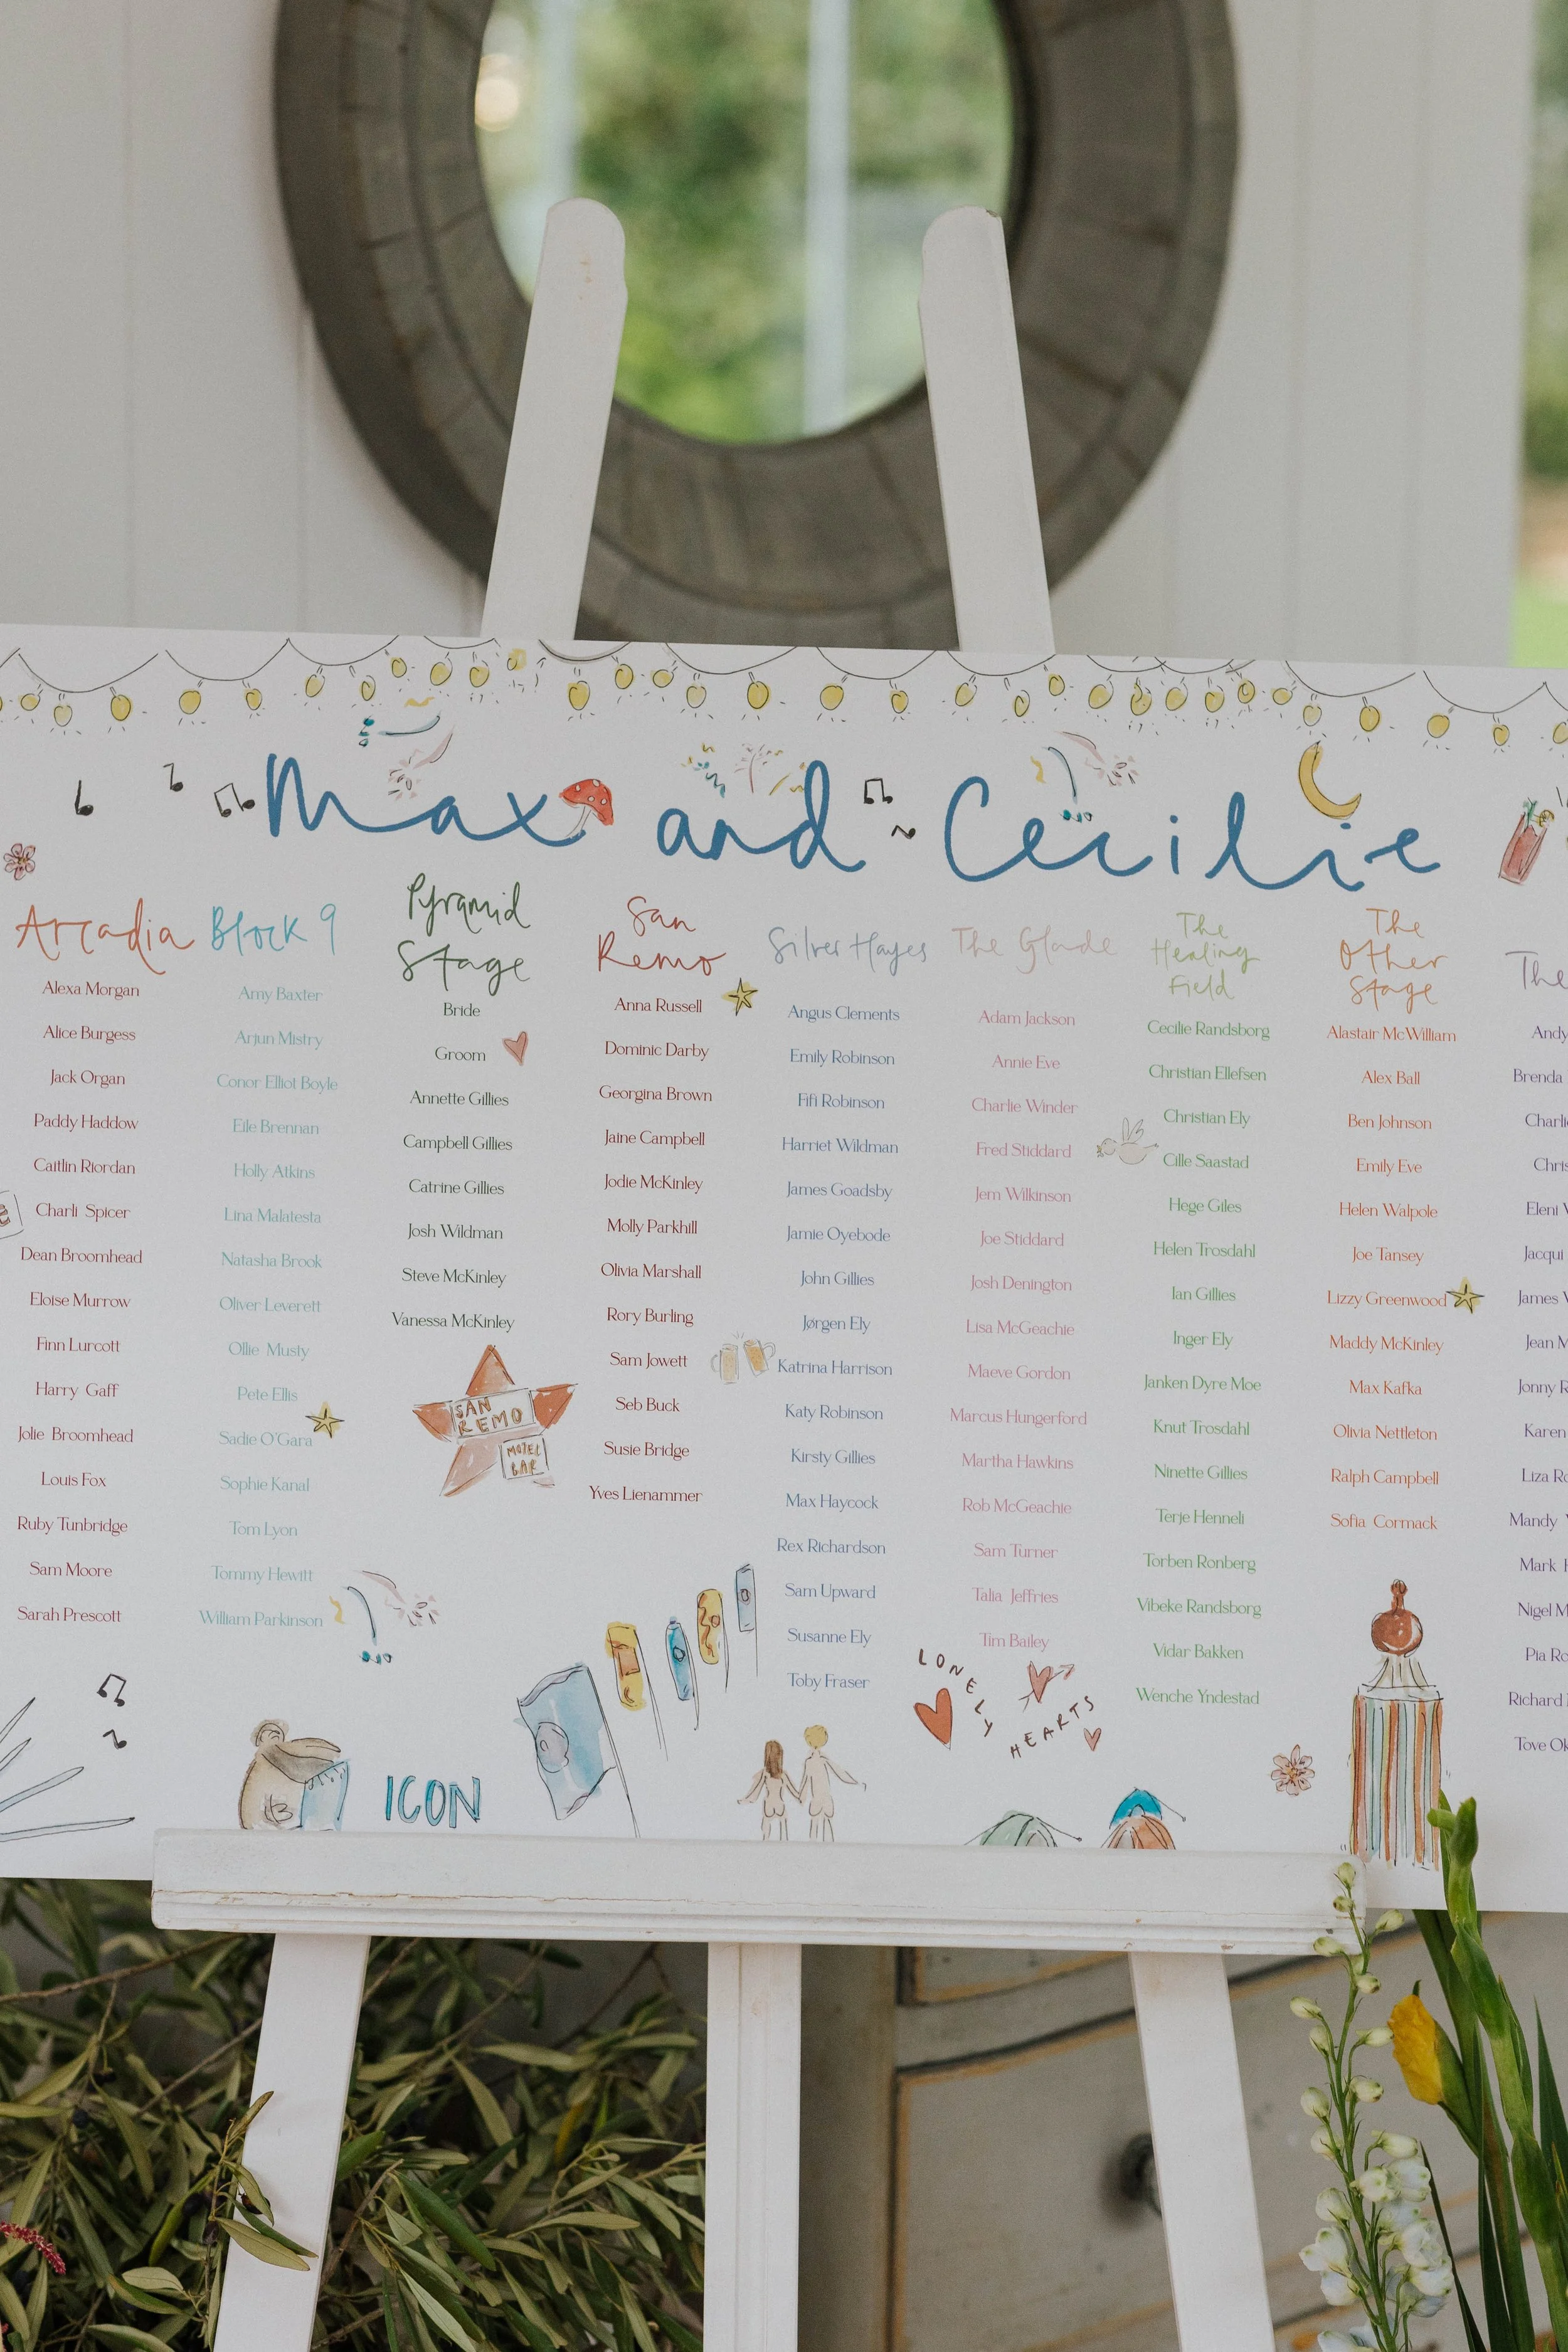 Max and Cecilie
Arcadia
Alexa Morgan
Alice Burgess
Jack Organ
Paddy Haddow
Caitlin Riordan
Charli Spicer
Dean Broomhead
Eloise Murrow
Finn Lurcott
Harry Gaff
Jolie Broomhead
Louis Fox
Ruby Tunbridge
Sam Moore
Sarah Prescott
Block 9
Amy Baxter
Arjun Mistry
Conor Elliot Boyle
Eile Brennan
Holly Atkins
Lina Malatesta
Natasha Brook
Oliver Leverett
Ollie Musty
Pete Ellis
Sadie O'Gara
Sophie Kanal
Tom Lyon
Tommy Hewitt
William Parkinson
ICON
Pyramid
Stage
Bride
Groom
Annette Gillies
Campbell Gillies
Catrine Gillies
Josh Wildman
Steve McKinley
Vanessa McKinley
SAN
REMO
MOTEL
BAR
San
Remo
Anna Russell
Dominic Darby
Georgina Brown
Jaine Campbell
Jodie McKinley
Molly Parkhill
Olivia Marshall
Rory Burling
Sam Jowett
Seb Buck
Susie Bridge
Yves Lienammer
Silver Hayes
Angus Clements
Emily Robinson
Fifi Robinson
Harriet Wildman
James Goadsby
Jamie Oyebode
John Gillies
Jørgen Ely
Katrina Harrison
Katy Robinson
Kirsty Gillies
Max Haycock
Rex Richardson
Sam Upward
Susanne Ely
Toby Fraser
The Glade
Adam Jackson
Annie Eve
Charlie Winder
Fred Stiddard
Jem Wilkinson
Joe Stiddard
Josh Denington
Lisa McGeachie
Maeve Gordon
Marcus Hungerford
Martha Hawkins
Rob McGeachie
Sam Turner
Talia Jeffries
Tim Bailey
LONELY
HEARTS
The
Healing
Field
Cecilie Randsborg
Christian Ellefsen
Christian Ely
Cille Saastad
Hege Giles
Helen Trosdahl
Ian Gillies
Inger Ely
Janken Dyre Moe
Knut Trosdahl
Ninette Gillies
Terje Henneli
Torben Ronberg
Vibeke Randsborg
Vidar Bakken
Wenche Yndestad
The
Other
Stage
Alastair McWilliam
Alex Ball
Ben Johnson
Emily Eve
Helen Walpole
Joe Tansey
Lizzy Greenwood
Maddy McKinley
Max Kafka
Olivia Nettleton
Ralph Campbell
Sofia Cormack
The
Andy
Brenda
Charli
Chris
Eleni
Jacqui
James
Jean
Jonny
Karen
Liza
Mandy
Mark
Nigel
Pia
Richard
Tove